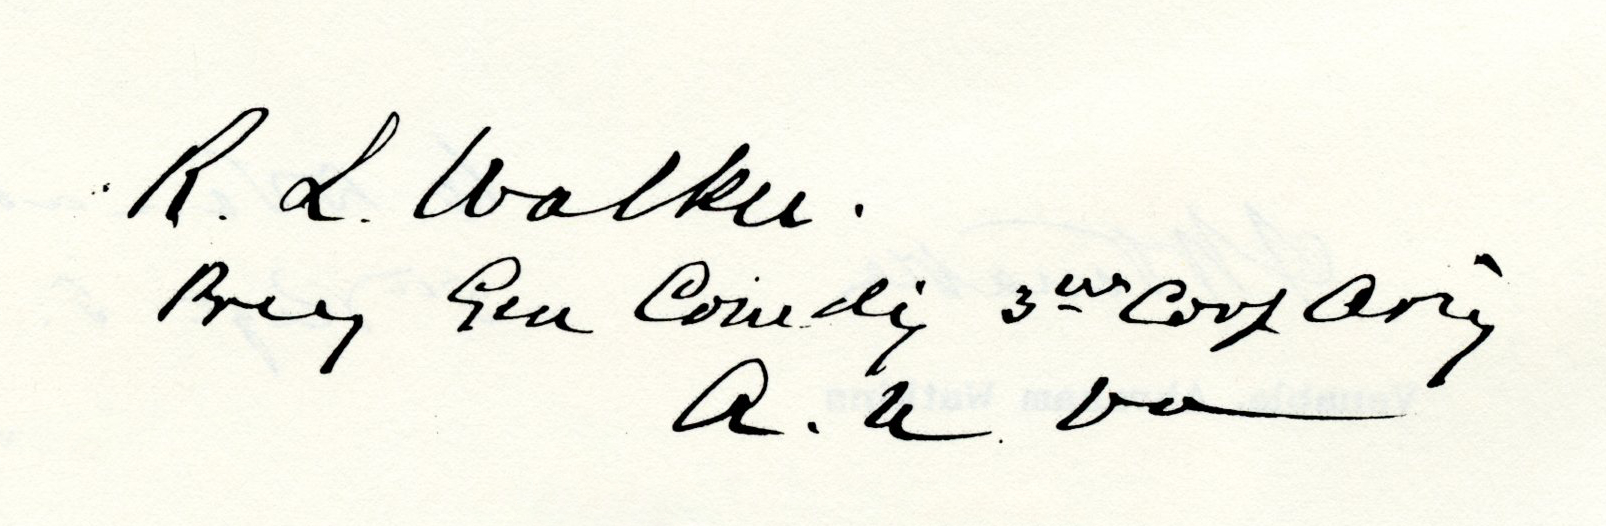 R. L. Walker.
Brig Gen Comdg 3rd Corps Arty
A. N Va